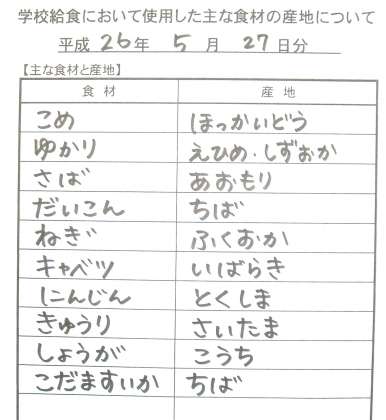 学校給食において使用した主な食材の産地について
平成 26 年 5 月 27 日分
【主な食材と産地】
食 材 産 地
こめ ほっかいどう
ゆかり えひめ・しずおか
さば あおもり
だいこん ちば
ねぎ ふくおか
キャベツ いばらき
にんじん とくしま
きゅうり さいたま
しょうが こうち
こだますいか ちば